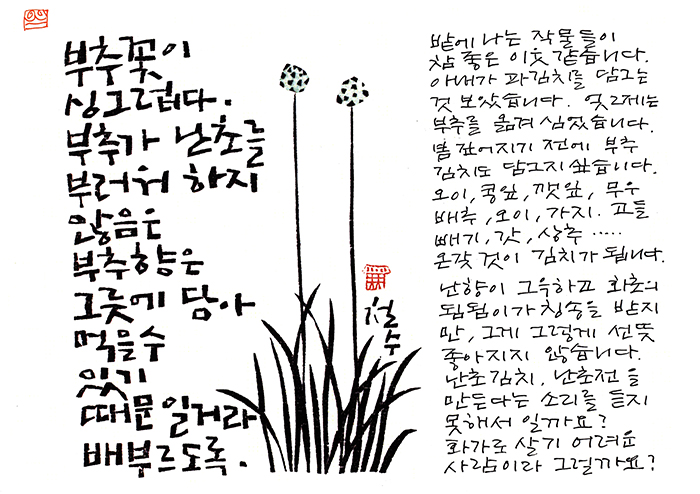 부추꽃이
싱그럽다.
부추가 난초를
부러워 하지
않음은
부추향은
그릇에 담아
먹을수
있기
때문일거라
배부르도록.
철수
밭에 나는 작물들이
참 좋은 이웃 같습니다.
아내가 파김치를 담그는
것 보았습니다. 엊그제는
부추를 옮겨 심었습니다.
봄 깊어지기 전에 부추
김치도 담그지 싶습니다.
오이, 콩잎, 깻잎, 무우
배추, 오이, 가지. 고들
빼기, 갓, 상추 .....
온갖 것이 김치가 됩니다.
난향이 그윽하고 화초의
됨됨이가 칭송을 받지
만, 그게 그렇게 선뜻
좋아지지 않습니다.
난초김치, 난초전을
만든다는 소리를 듣지
못해서 일까요?
화가로 살기 어려운
사람이라 그럴까요?